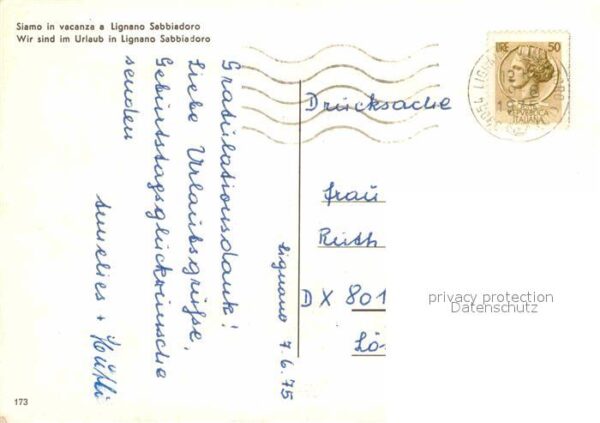 Siamo in vacanza a Lignano Sabbiadoro
Wir sind im Urlaub in Lignano Sabbiadoro
Gratulationsdank!
Liebe Urlaubsgrüsse,
Geburtstagsglückwünsche
senden
Lignano 7.6.75
Drucksache
LIRE 50
REPVBBLICA
ITALIANA
Frau
Ruth
DX 801
Lö
privacy protection
Datenschutz
173